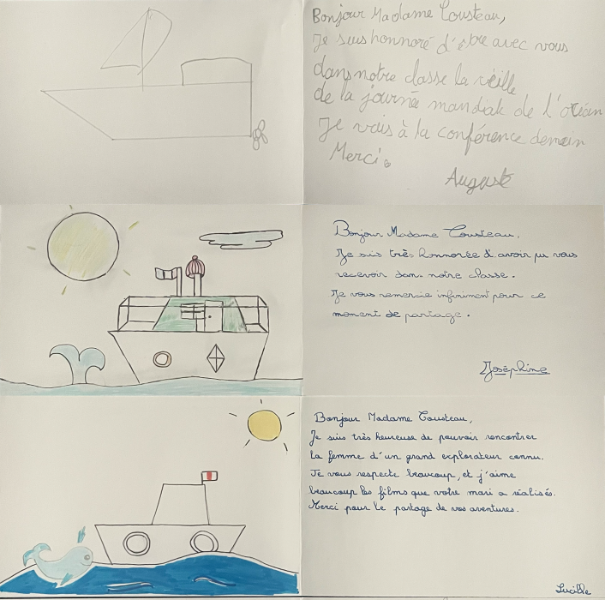 Bonjour Madame Cousteau,
Je suis honnoré d'être avec vous
dans notre classe la veille
de la journée mondiale de l'océan
Je vais à la conférence demain
Merci.
Auguste
Bonjour Madame Cousteau.
Je suis très honnorée d'avoir pu vous
recevoir dans notre classe.
Je vous remercie infiniment pour ce
moment de partage.
Joséphine
Bonjour Madame Cousteau,
Je suis très heureuse de pouvoir rencontrer
la femme d'un grand explorateur connu.
Je vous respecte beaucoup, et j'aime
beaucoup les films que votre mari a réalisés.
Merci pour le partage de vos aventures.
Lucille